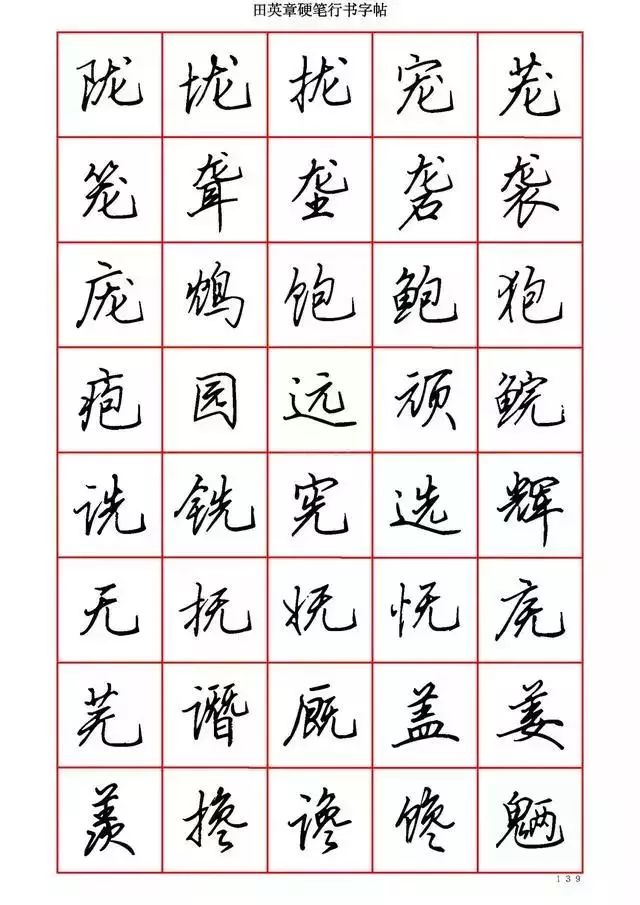 田英章硬笔行书字帖
陇 垅 拢 宠 茏
笼 聋 垄 砻 袭
庞 饱 鲍 狍
疱 园 远 顽 鲩
诜 铣 宪 选 辉
无 抚 妩 怃 庑
芜 谮 厩 盖 姜
羡 搀 谗 馋 魉
139